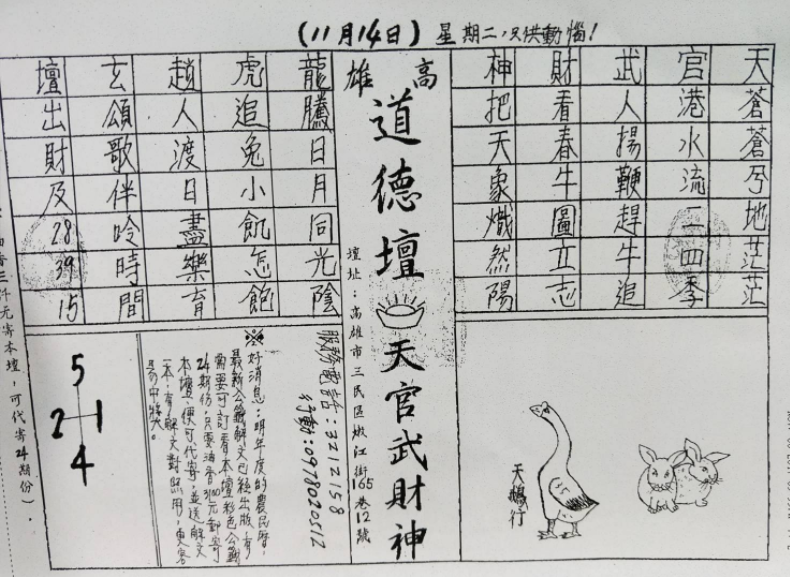 (11月14日)星期二,只供動惱!
天蒼蒼兮地茫茫
官港水流二四季
武人揚鞭趕牛追
財看春牛圖立志
神把天象熾然陽
高雄
道德壇
天官武財神
壇址:高雄市三民區嫩江街165巷12號
龍騰日月同光陰
虎追兔小飢怎飽
趙人渡日盡樂育
玄頌歌伴吟時間
壇出財及28 39 15
天鵝行
服務電話:3212158
行動:0978020512
※
好消息:明年度的農民曆,
最新公籤解文已經出版,有
需要可訂看本壇彩色公籤
24期份,只要油香3100元郵寄
本壇,便可代寄,並送解文
一本,有解文對照用,更容
易中獎。
5
2 1
4
香三仟元寄本壇,可代寄24期份).